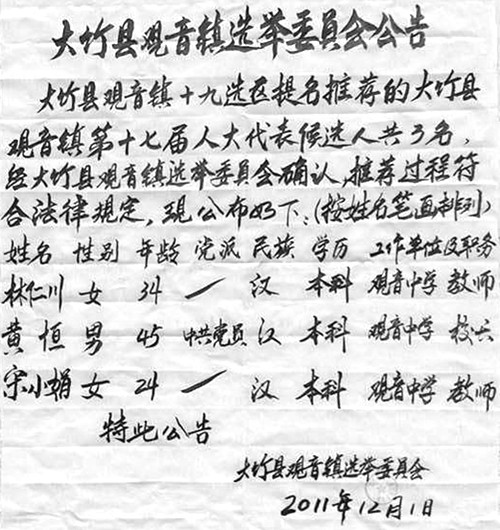 大竹县观音镇选举委员会公告
大竹县观音镇十九选区提名推荐的大竹县
观音镇第十七届人大代表候选人共3名,
经大竹县观音镇选举委员会确认,推荐过程符
合法律规定,现公布如下:(按姓名笔画排列)
姓名 性别 年龄 党派 民族 学历 工作单位及职务
林仁川 女 34 一 汉 本科 观音中学 教师
黄恒 男 45 中共党员 汉 本科 观音中学 校长
宋小娟 女 24 一 汉 本科 观音中学 教师
特此公告
大竹县观音镇选举委员会
2011年12月1日